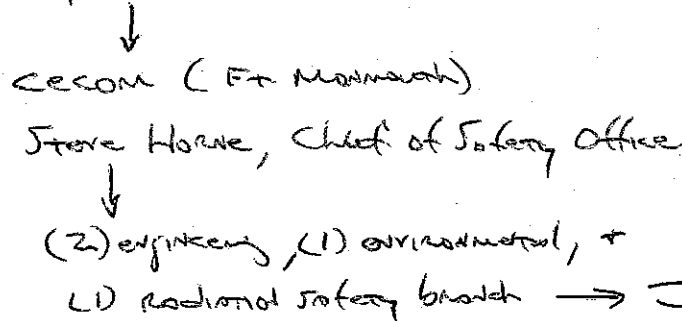 ↓
CECOM (Ft Monmouth)
Steve Horne, Chief of Safety Office
↓
(2) engineering, (1) environmental, +
(1) radiation safety branch →